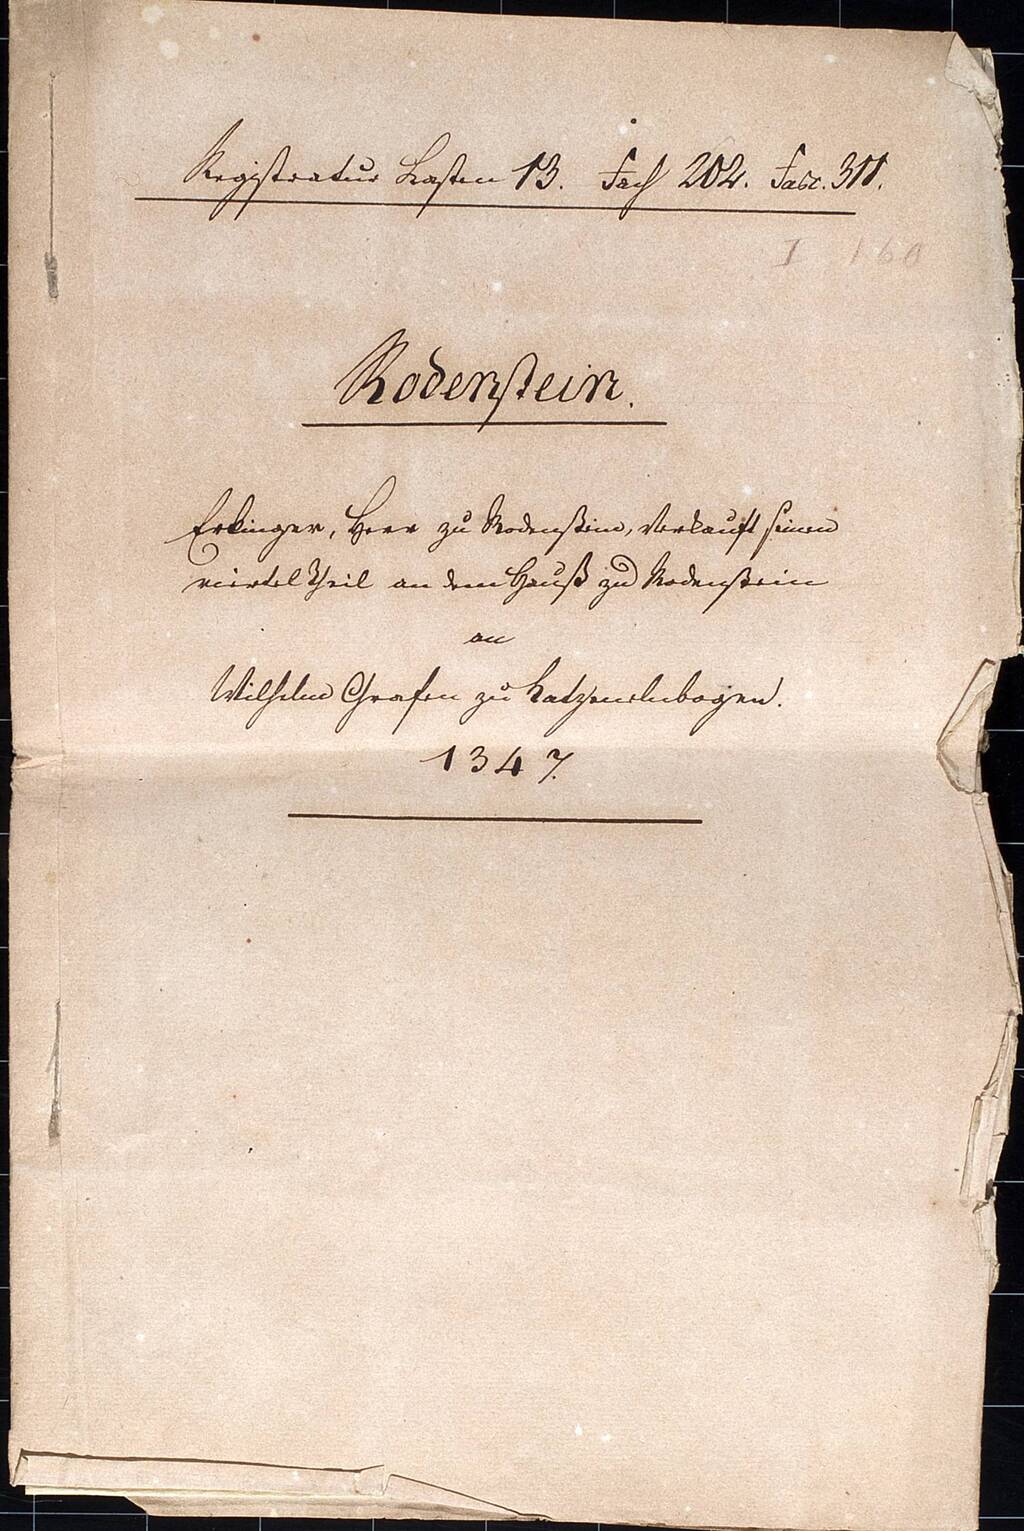 Registratur Kasten 13. Fach 202. Fasc. 311.
I 160
Rodenstein.
Erkinger, Herr zu Rodenstein, verkauft seinen
viertel Theil an dem Hauß zu Rodenstein
an
Wilhelm Grafen zu Katzenelnbogen.
1347.